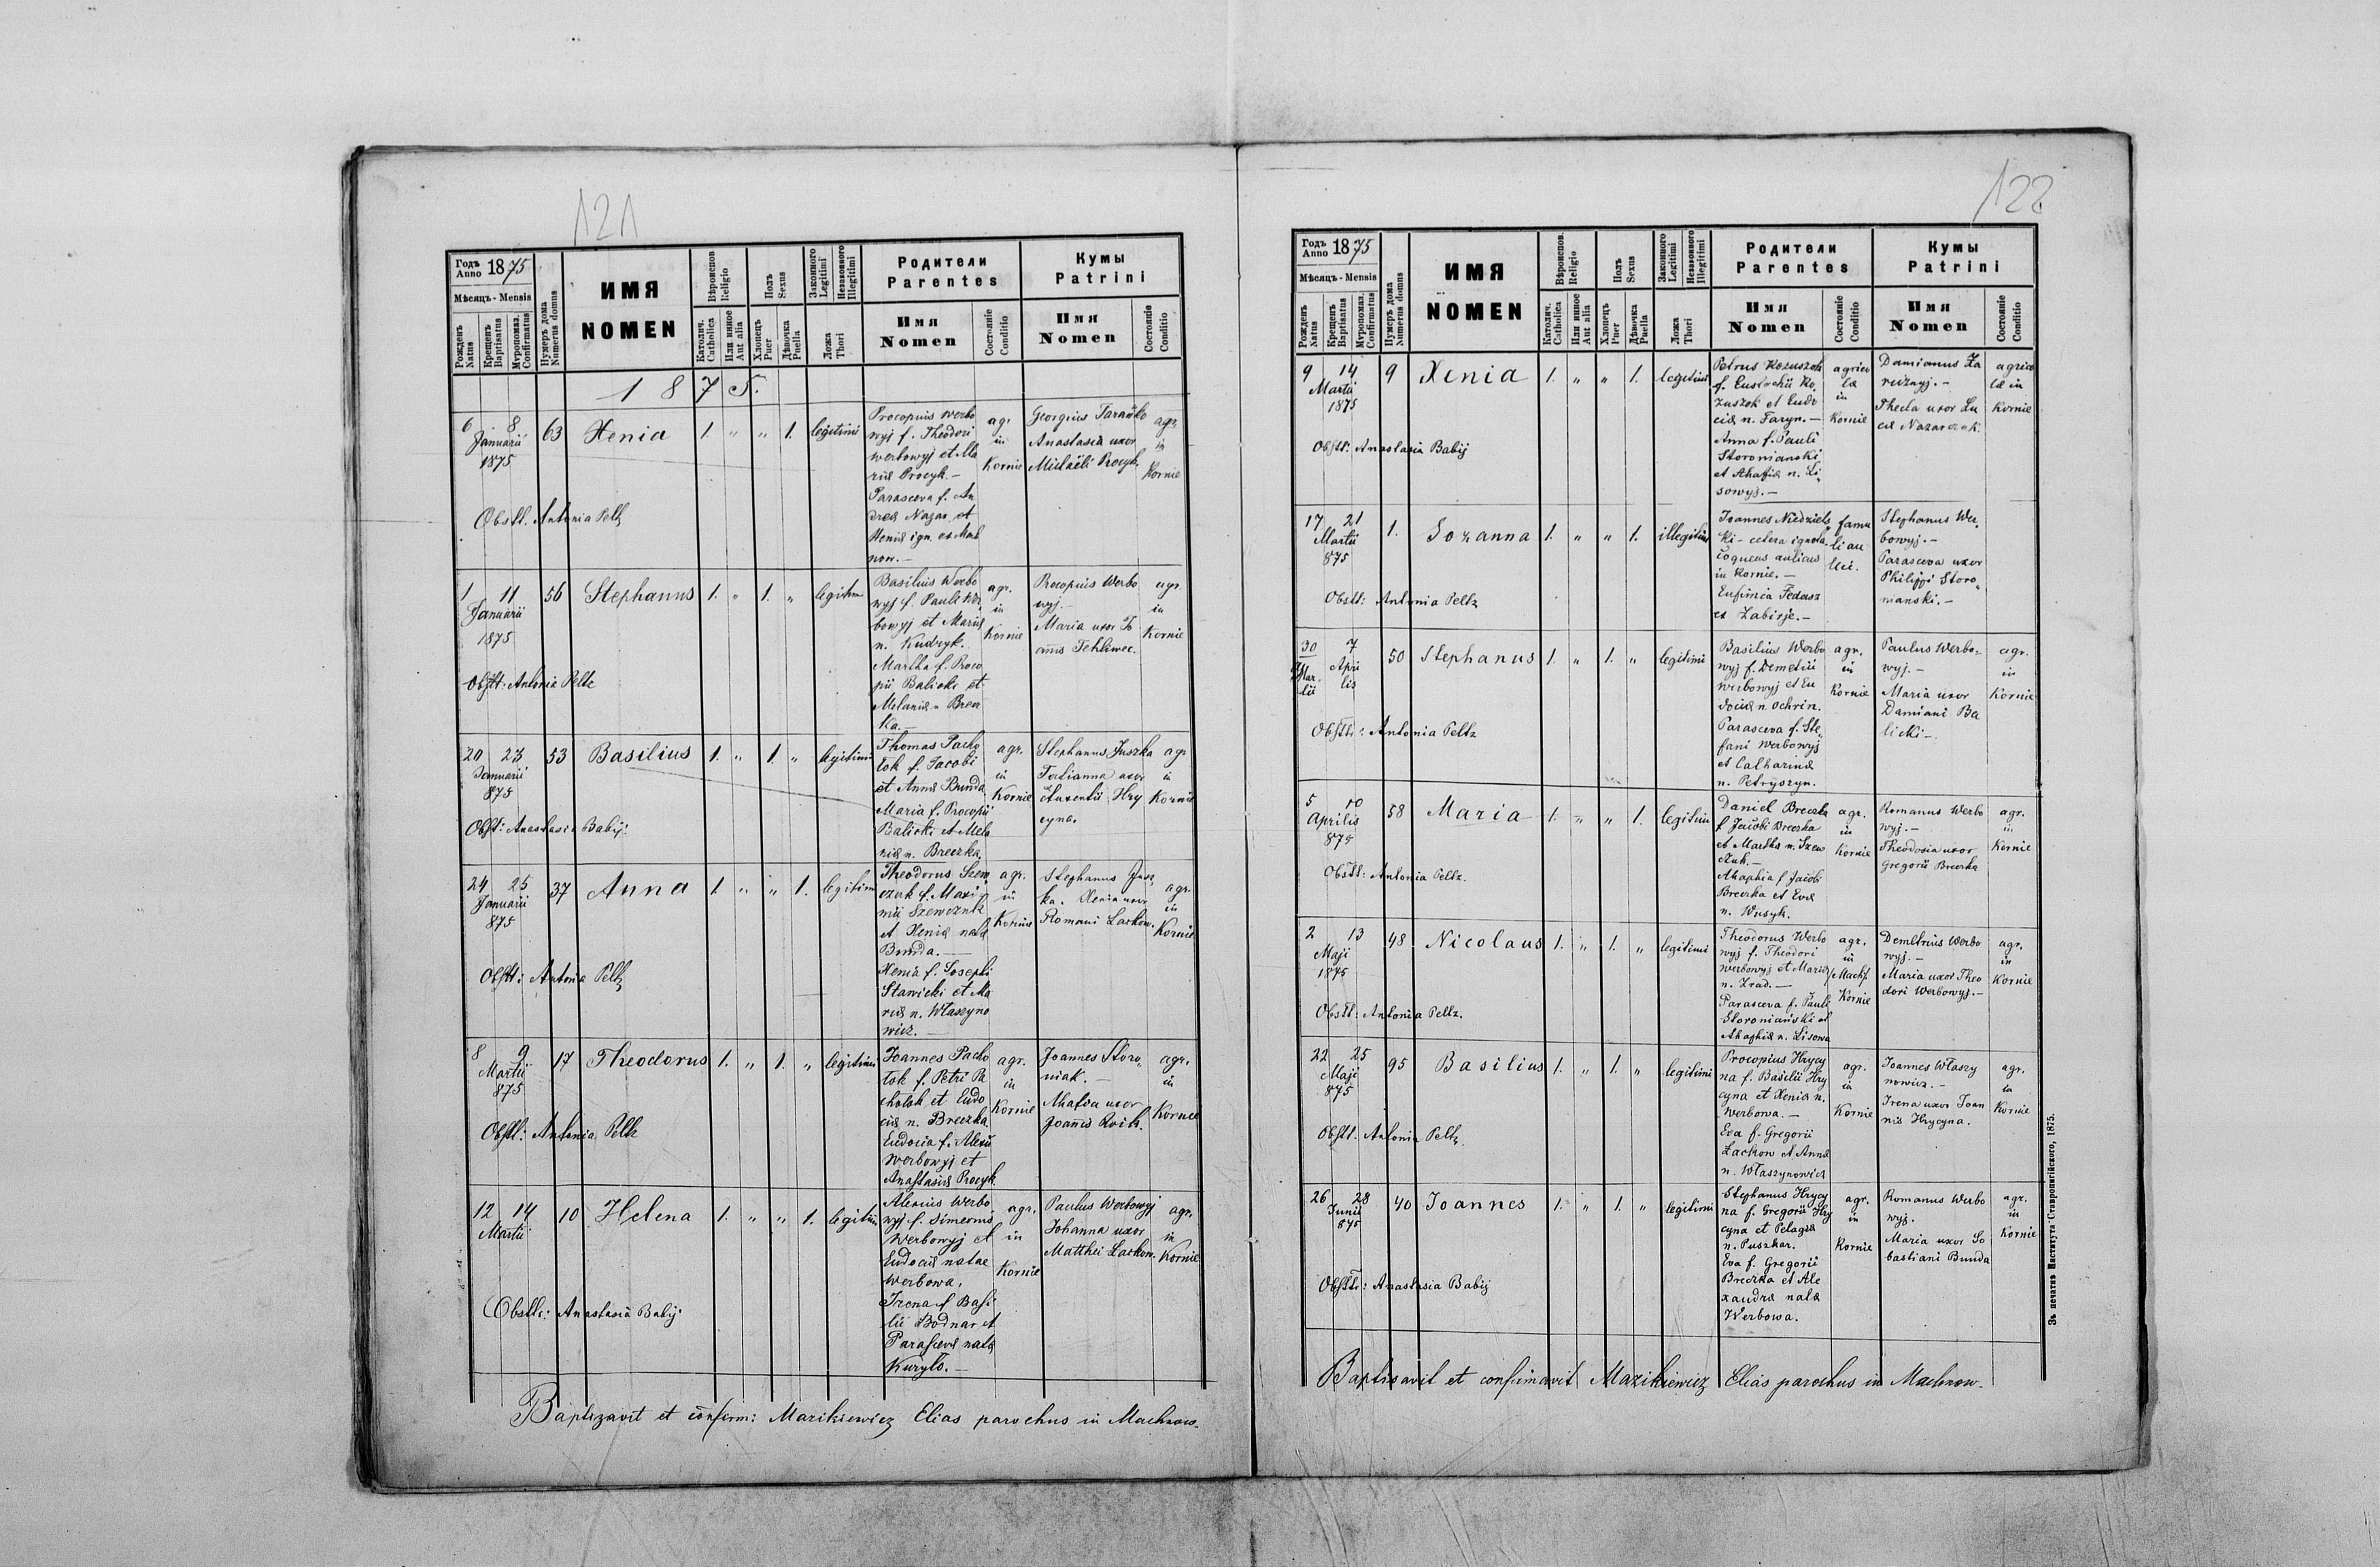 121
Годъ Anno 1875
Мѣсяцъ - Mensis
Рожденъ Natus
Крещенъ Baptisatus
Мѵропомаз. Confirmatus
Нумеръ дома Numerus domus
ИМЯ
NOMEN
Вѣроиспов. Religio
Католич. Catholica
Или инное Aut alia
Полъ Sexus
Хлопецъ Puer
Дѣвочка Puella
Законного Legitimi
Незаконного Illegitimi
Ложа Thori
Родители
Parentes
Имя
Nomen
Состояніе Conditio
Кумы
Patrini
Имя
Nomen
Состояніе Conditio
1875.
6 8 Januarii 1875
63
Xenia
1. " " 1.
legitimi
Procopius Werbo
wyj f. Theodori
Werbowyj et Ma
riæ Procyk.—
Parasceva f. An
dreæ Nazar et
Xeniæ ign. ex Mach
now.—
agr. in Kornie
Georgius
Anastasia uxor
Michaëli Procyk.
agr. in Kornie
Obstt. Antonia Peltz
1 11 Januarii 1875
56
Stephanus
1. " 1. "
legitimi
Basilius Werbo
wyj f. Pauli Wer
bowyj et Mariæ
n. Kudryk.
Martha f. Proco
pii Balicki et
Melaniæ n. Brecz
ka.—
agr. in Kornie
Procopius Werbo
wyj.—
Maria uxor Jo
annis Tehliwec.
agr. in Kornie
Obstt: Antonia Peltz
20 23 Januarii 875
53
Basilius
1. " 1. "
legitimi
Thomas Pacho
lok f. Jacobi
et Annæ Bunda
Maria f. Procopii
Balicki et Mela
niæ n. Breczka.
agr. in Kornie
Stephanus Juszka
Tatianna uxor
Auxentii Hry
cyna.
agr. in Kornie
Obstt: Anastasia Babij
24 25 Januarii 875
37
Anna
1. " " 1.
legitimi
Theodorus Szew
czuk f. Maxi
mii Szewczuk
et Xeniæ natæ
Bunda.—
Xenia f. Josephi
Stawicki et Ma
riæ n. Właszyno
wicz.—
agr. in Kornie
Stephanus Jusz
ka. Xenia uxor
Romani Lackow.
agr. in Kornie
Obstt: Antonia Peltz
8 9 Martii 875
17
Theodorus
1. " 1. "
legitimi
Joannes Pacho
lok f. Petri Pa
cholok et Eudo
ciæ n. Breczka
Eudocia f. Alexii
Werbowyj et
Anastasiæ Procyk
agr. in Kornie
Joannes Storo
niak.—
Ahafia uxor
Joannis
agr. in Kornie
Obstt: Antonia Peltz
12 14 Martii
10
Helena
1. " " 1.
legitimi
Alexius Werbo
wyj f. Simeonis
Werbowyj et
Eudociæ natae
Werbowa.
Irena f. Basi
lii Bodnar et
Parascevæ natæ
Kuryło.—
agr. in Kornie
Paulus Werbowyj
Johanna uxor
Matthei Lackow.
agr. in Kornie
Obstt: Anastasia Babij
Baptizavit et conferm: Mazikiewicz Elias parochus in Machnow.
122
Годъ Anno 1875
Мѣсяцъ - Mensis
Рожденъ Natus
Крещенъ Baptisatus
Мѵропомаз. Confirmatus
Нумеръ дома Numerus domus
ИМЯ
NOMEN
Вѣроиспов. Religio
Католич. Catholica
Или инное Aut alia
Полъ Sexus
Хлопецъ Puer
Дѣвочка Puella
Законного Legitimi
Незаконного Illegitimi
Ложа Thori
Родители
Parentes
Имя
Nomen
Состояніе Conditio
Кумы
Patrini
Имя
Nomen
Состояніе Conditio
9 14 Martii 1875
9
Xenia
1. " " 1.
legitimi
Petrus Kozuszok
f. Eustachii Ko
zuszok et Eudo
ciæ n. Faryn.—
Anna f. Pauli
Storonianski
et Ahafiæ n. Li
sowyj.—
agrico læ in Kornie
Damianus Za
Thecla uxor Lu
cæ Nazarczuk
agrico læ in Kornie
Obstt: Anastasia Babij
17 21 Martii 875
1.
Sozanna
1. " " 1.
illegitimi
Joannes Niedziels
ki - cetera ignota.
Coqueus aulicus
in Kornie.—
Eufimia Fedasz
ex Zabirje.—
famu li au lici.
Stephanus Wer
bowyj.—
Parasceva uxor
Philippi Storo
nianski.—
Obstt: Antonia Peltz
30 Martii 7 Aprilis
50
Stephanus
1. " 1. "
legitimi
Basilius Werbo
wyj f. Demetrii
Werbowyj et Eu
dociæ n. Ochrin.
Parasceva f. Ste
fani Werbowyj
et Catharinæ
n. Petryszyn.
agr. in Kornie
Paulus Werbo
wyj.—
Maria uxor
Damiani Ba
licki—
agr. in Kornie
Obstt: Antonia Peltz
5 10 Aprilis 875
58
Maria
1. " " 1.
legitimi
Daniel Breczka
f. Jacobi Breczka
et Marthæ n. Szew
czuk.—
Ahaphia f. Jacobi
Breczka et Evæ
n. Wusyk.
agr. in Kornie
Romanus Werbo
wyj.—
Theodosia uxor
Gregorii Breczka
agr. in Kornie
Obstt: Antonia Peltz.
2 13 Maji 1875
48
Nicolaus
1. " 1. "
legitimi
Theodorus Werbo
wyj f. Theodori
Werbowyj et Mariæ
n. Zrad.—
Parasceva f. Pauli
Storoniański et
Ahaphiæ n. Lisowa
agr. in Kornie
Demetrius Werbo
wyj.—
Maria uxor Theo
dori Werbowyj.—
agr. in Kornie
Obstt: Antonia Peltz.
22 25 Maji 875
95
Basilius
1. " 1. "
legitimi
Procopius Hrycy
na f. Basilii Hry
cyna et Xeniæ n.
Werbowa.—
Eva f. Gregorii
Lackow et Annæ
n. Właszynowicz
agr. in Kornie
Joannes Właszy
nowicz.—
Irena uxor Joan
nis Hrycyna.
agr. in Kornie
Obstt. Antonia Peltz.
26 28 Junii 875
40
Joannes
1. " 1. "
legitimi
Stephanus Hrycy
na f. Gregorii Hry
cyna et Pelagiæ
n. Puszkar.
Eva f. Gregorii
Breczka et Ale
xandræ natæ
Werbowa.
agr. in Kornie
Romanus Werbo
wyj.
Maria uxor Se
bastiani Bunda
agr. in Kornie
Obstt: Anastasia Babij
Baptisavit et confirmavit Mazikiewicz Elias parochus in Machnow.
Зъ печатнѣ Института Ставропигійского, 1875.